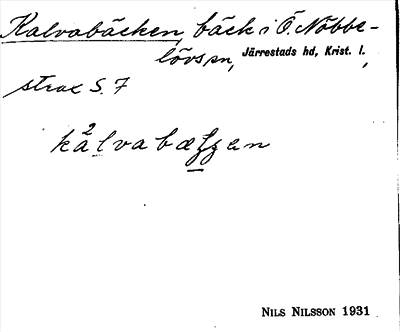 Kalvabäcken, bäck i Ö. Nöbbe-
lövs sn, Järrestads hd, Krist. l.,
strax S. 7
Nils Nilsson 1931